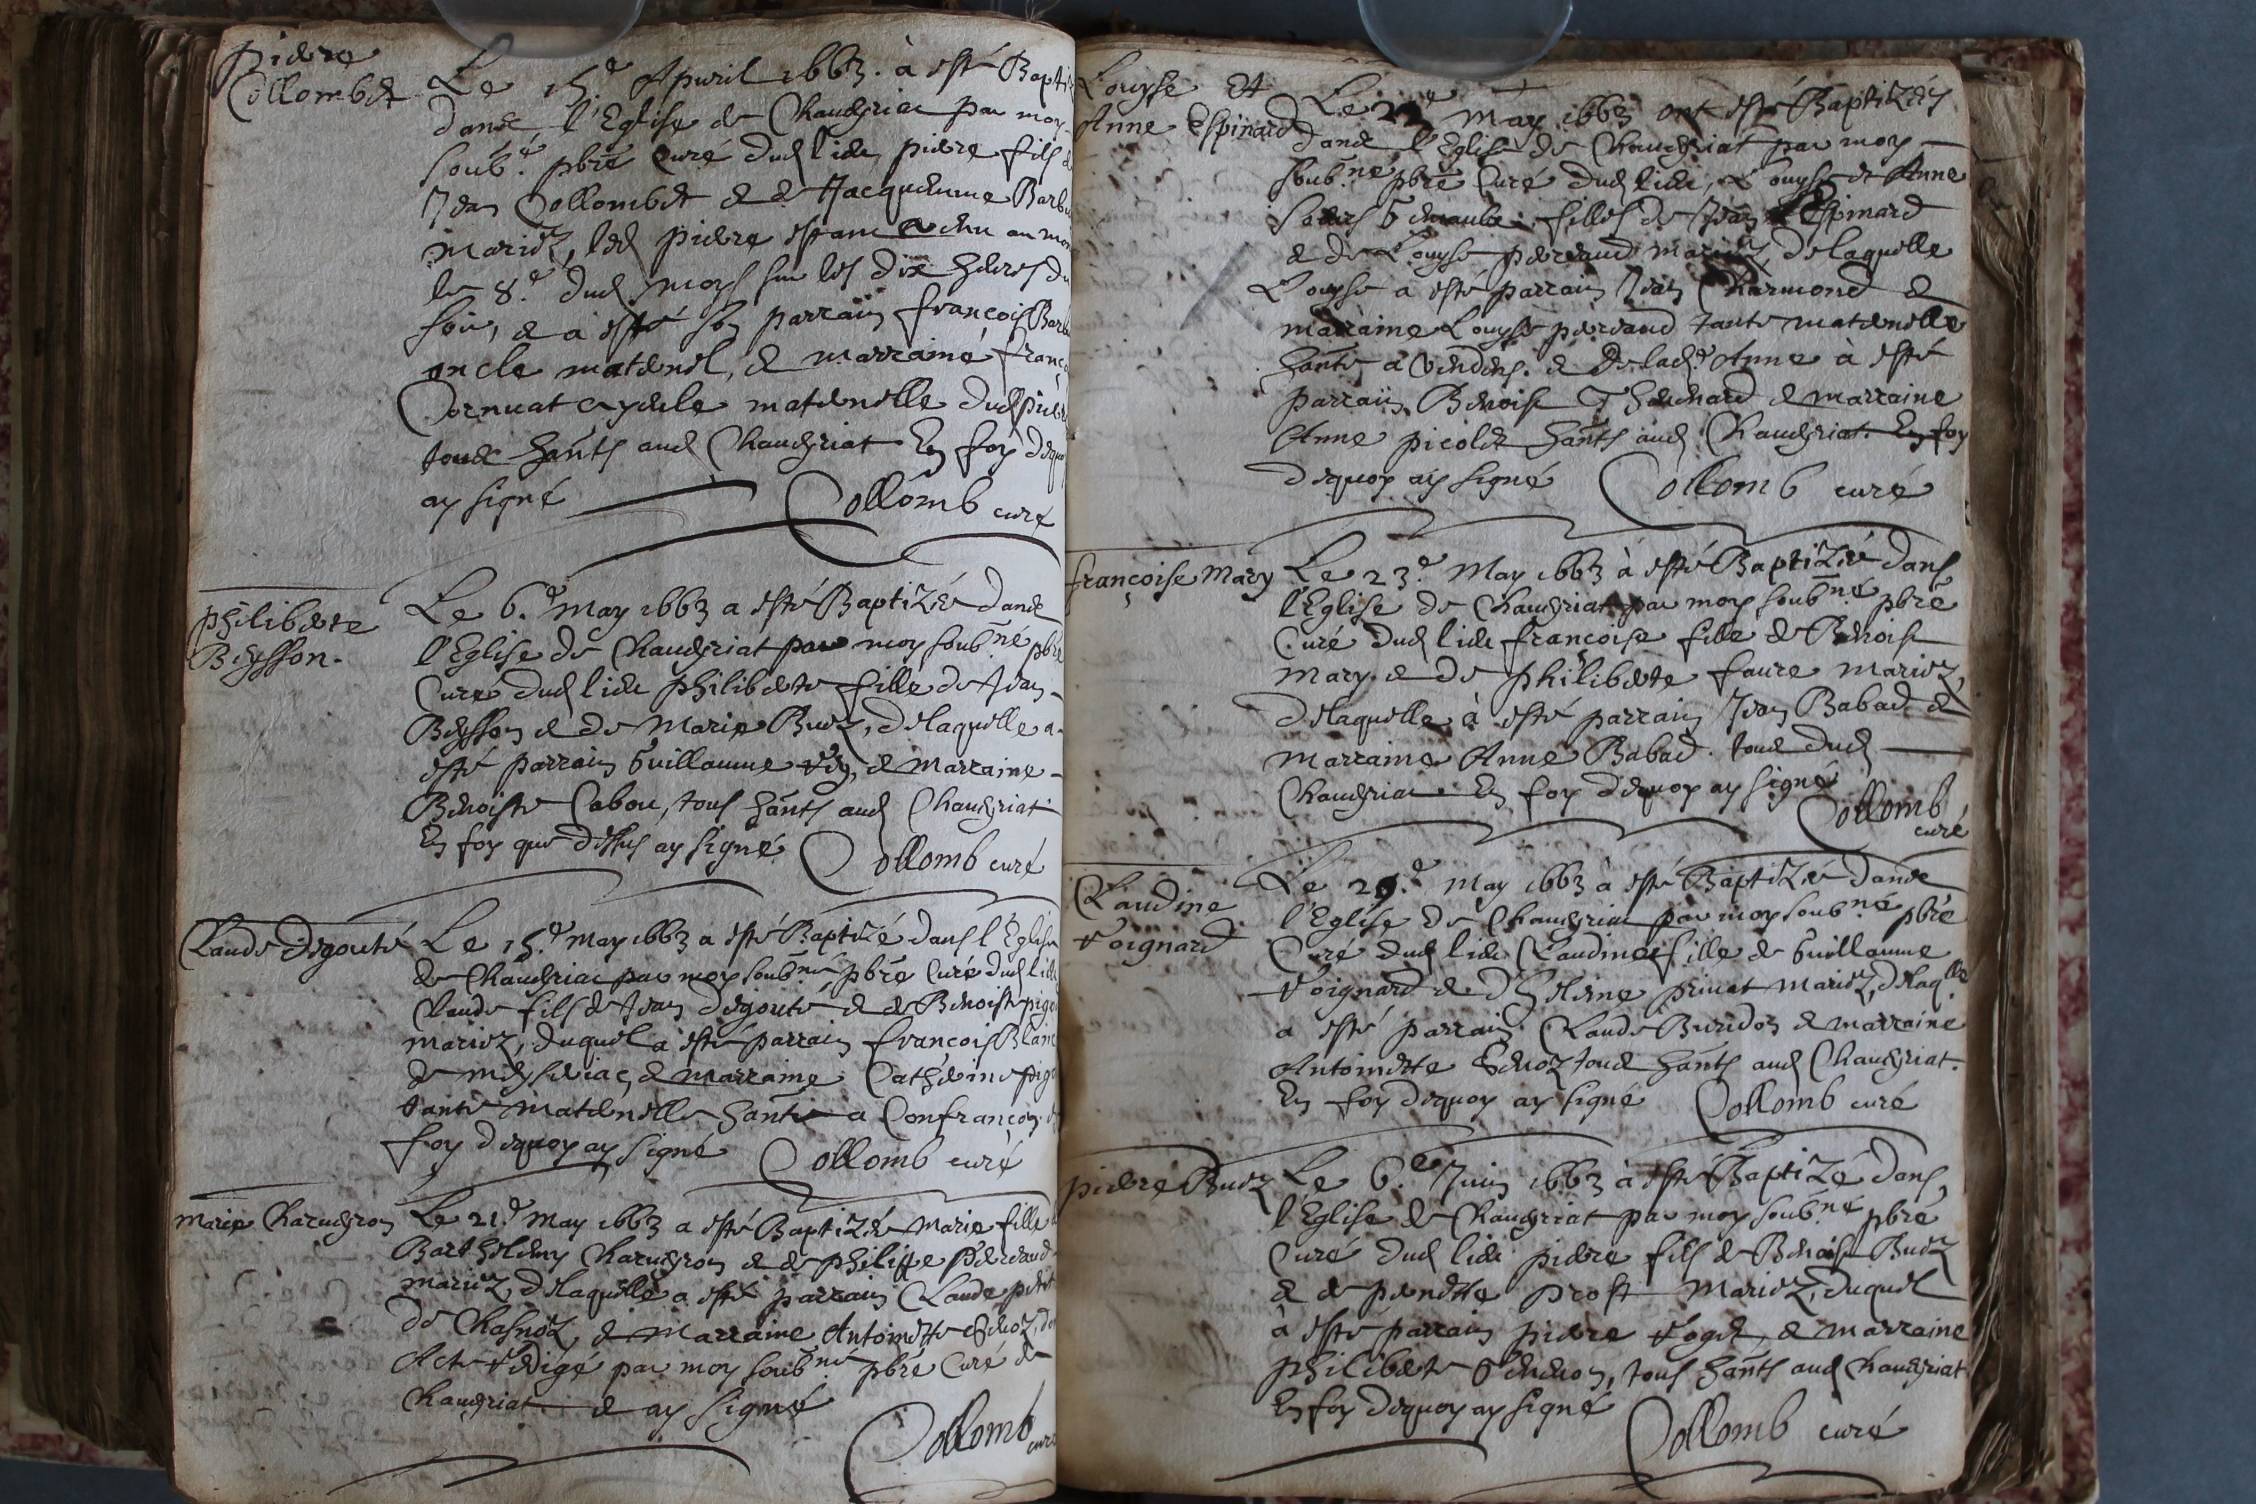 Pierre
Collombet
Le 15.e Apvril 1663. à esté Bapti
dans l'Eglise de Chaveyriat par moy
soub.é pbrē Curé dud lieu pierre fils d
Jean Collombet & de Jacquemme Barb
mariez, led pierre estant venu au mon
le 8.e dud moys sur les dix heures du
soir, & a esté son parrain françois Barb
oncle maternel, & marraine franç
Cornuat ayeule maternelle dud pier
tous hāñts aud Chaveyriat En foy dequ
ay signé Collomb curé
philiberte
Beysson.
Le 6.e May 1663 a esté Baptizée dans
l'Eglise de Chaveyriat par moy soub.né pbrē
Curé dud lieu philiberte fille de Jean
Beysson & de Marie Buez, delaquelle a
esté parrain Guillaume & marraine
Benoiste Cabou, tous hāñts aud Chaveyriat
En foy que dessus ay signé Collomb curé
Claude degouté
Le 15.e May 1663 a esté Baptizé dans l'Eglise
de Chaveyriat par moy soub.né pbrē Curé dud lieu
Claude fils de Jean degouté & de Benoiste pig
mariez, duquel a esté parrain françois Blanc
de meyseriac, & marraine Catherine pig
tante maternelle hāñte a Confrançon. E
foy dequoy ay signé Collomb curé
Marie Charveyron
Le 21.e May 1663 a esté Baptizée Marie fille d
Barthelemy Charveyron & de philippe perreaud
mariez, delaquelle a esté parrain Claude petit
de Chasnoz, & Marraine Antoinette Genoz, d
Acte redigé par moy soub.né pbrē Curé de
Chaveyriat & ay signé
Collomb curé
Louyse Et
Anne Espinard
Le 22.e May 1663 ont esté Baptizées
dans l'Eglise de Chaveyriat par moy
soub.né pbrē Curé dud lieu, Louyse & Anne
seurs Gemelles filles de Jean Espinard
& de Louyse perreaud mariez, delaquelle
Louyse a esté parrain Jean Charmond &
marraine Louyse perreaud tante maternelle
hāñte a Vendeins. & de lad.e Anne à esté
parrain Benoist Thevenard & marraine
Anne picolet hāñts aud Chaveyriat. En foy
dequoy ay signé Collomb curé
françoise Mary
Le 23.e May 1663 à esté Baptizée dans
l'Eglise de Chaveyriat par moy soub.né pbrē
Curé dud lieu françoise fille de Benoist
Mary & de philiberte faure mariez,
delaquelle à esté parrain Jean Babad &
marraine Anne Babad. tous dud
Chaveyriat En foy dequoy ay signé
Collomb
curé
Claudine
Voignard
Le 29.e May 1663 à esté Baptizée dans
l'Eglise de Chaveyriat par moy soub.né pbrē
Curé dud lieu Claudine fille de Guillaume
Voignard & d'Helene privat mariez, delaq.lle
a esté parrain Claude Buridon & marraine
Antoinette Genoz tous hāñts aud Chaveyriat.
En foy dequoy ay signé Collomb curé
pierre Buez
Le 6.e Juin 1663 à esté Baptizé dans
l'Eglise de Chaveyriat par moy soub.né pbrē
Curé dud lieu pierre fils de Benoist Buez
& de pernette prost mariez, duquel
à esté parrain pierre Voget, & marraine
philiberte Genevon, tous hāñts aud Chaveyriat
En foy dequoy ay signé
Collomb curé